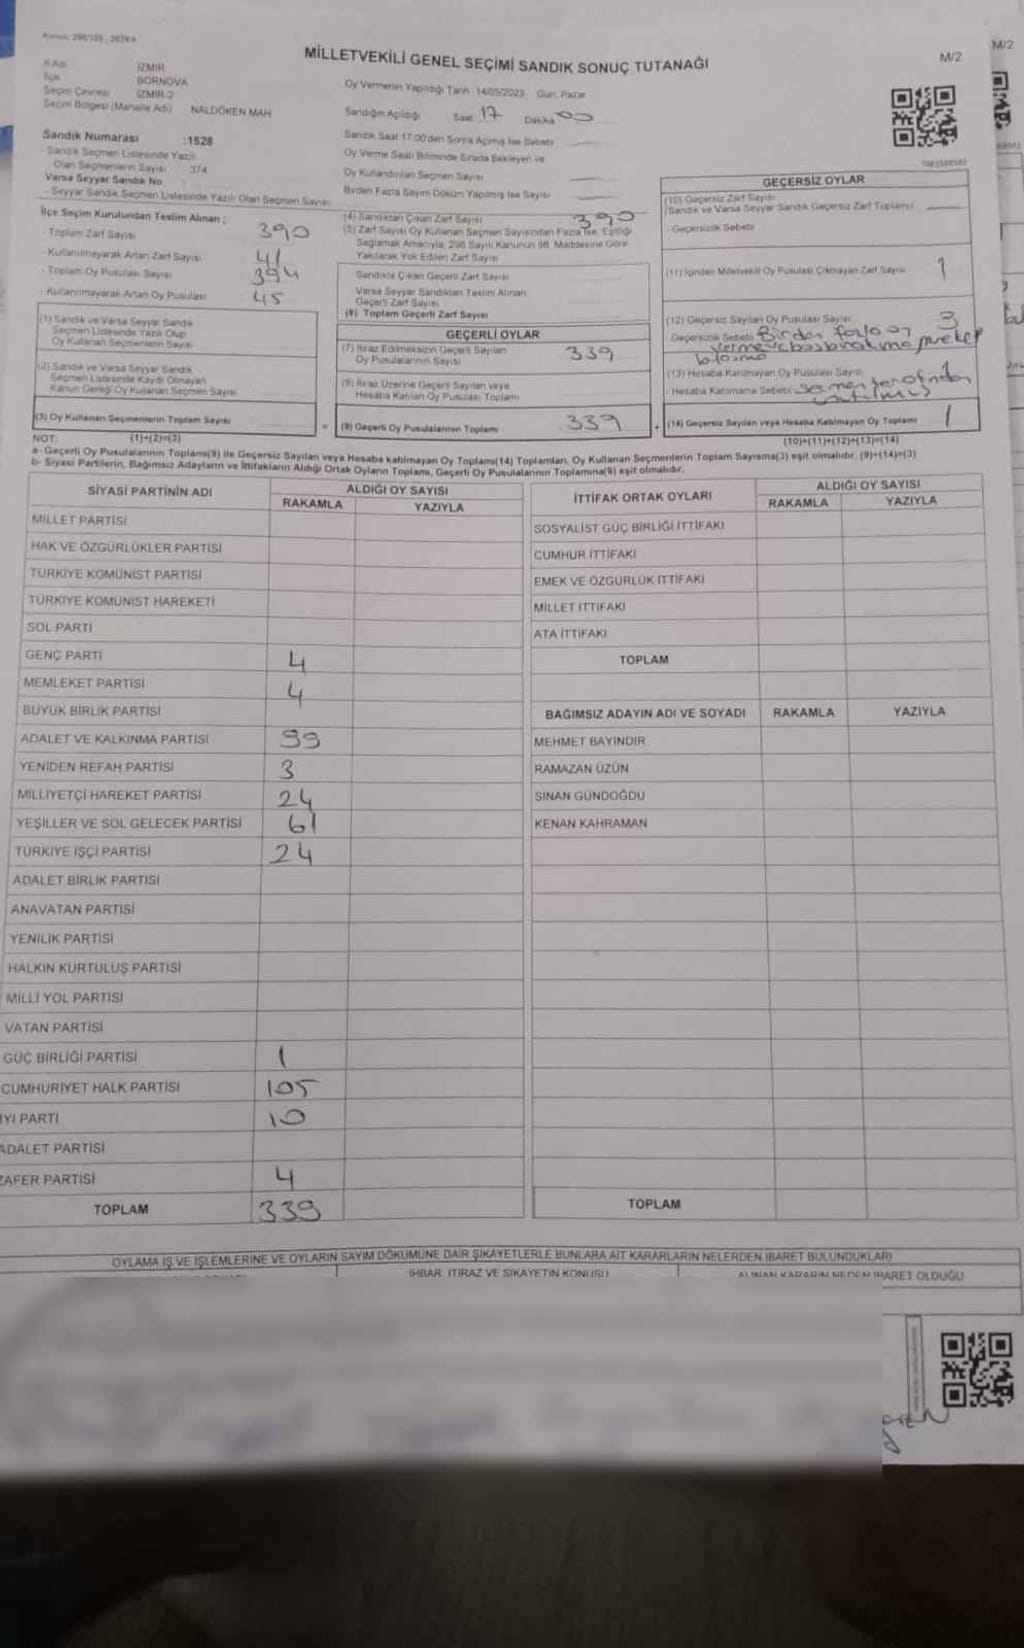 MİLLETVEKİLİ GENEL SEÇİMİ SANDIK SONUÇ TUTANAĞI
M/2
M/2
İZMİR
İlçe BORNOVA
Seçim Çevresi İZMİR-2
Seçim Bölgesi (Mahalle Adı) NALDÖKEN MAH
Sandık Numarası :1528
Sandık Seçmen Listesinde Yazılı
Olan Seçmenlerin Sayısı 374
Varsa Seyyar Sandık No
- Seyyar Sandık Seçmen Listesinde Yazılı Olan Seçmen Sayısı
Oy Vermenin Yapıldığı Tarih 14/05/2023 Gün: Pazar
Sandığın Açıldığı Saat 17 Dakika 00
Sandık Saat 17:00'den Sonra Açılmış İse Sebebi
Oy Verme Saati Bitiminde Sırada Bekleyen ve
Oy Kullandırılan Seçmen Sayısı
Birden Fazla Sayım Döküm Yapılmış İse Sayısı
İlçe Seçim Kurulundan Teslim Alınan ;
- Toplam Zarf Sayısı 390
- Kullanılmayarak Artan Zarf Sayısı 41
- Toplam Oy Pusulası Sayısı 394
- Kullanılmayarak Artan Oy Pusulası 45
(1) Sandık ve Varsa Seyyar Sandık
Seçmen Listesinde Yazılı Olup
Oy Kullanan Seçmenlerin Sayısı
(2) Sandık ve Varsa Seyyar Sandık
Seçmen Listesinde Kayıtlı Olmayan
Kanun Gereği Oy Kullanan Seçmen Sayısı
(3) Oy Kullanan Seçmenlerin Toplam Sayısı
(4) Sandıktan Çıkan Zarf Sayısı 390
(5) Zarf Sayısı Oy Kullanan Seçmen Sayısından Fazla İse, Eşitliği
Sağlamak Amacıyla, 298 Sayılı Kanunun 98. Maddesine Göre
Yakılarak Yok Edilen Zarf Sayısı
Sandıkta Çıkan Geçerli Zarf Sayısı
Varsa Seyyar Sandıktan Teslim Alınan
Geçerli Zarf Sayısı
(6) Toplam Geçerli Zarf Sayısı
GEÇERLİ OYLAR
(7) İtiraz Edilmeksizin Geçerli Sayılan
Oy Pusulalarının Sayısı 339
(8) İtiraz Üzerine Geçerli Sayılan veya
Hesaba Katılan Oy Pusulası Toplamı
(9) Geçerli Oy Pusulalarının Toplamı 339
GEÇERSİZ OYLAR
(10) Geçersiz Zarf Sayısı
(Sandık ve Varsa Seyyar Sandık Geçersiz Zarf Toplamı)
- Geçersizlik Sebebi
(11) İçinden Milletvekili Oy Pusulası Çıkmayan Zarf Sayısı 1
(12) Geçersiz Sayılan Oy Pusulası Sayısı 3
Geçersizlik Sebebi Birden fazla oy
(13) Hesaba Katılmayan Oy Pusulası Sayısı
- Hesaba Katılmama Sebebi seçmen tarafından
yırtılmış
(14) Geçersiz Sayılan veya Hesaba Katılmayan Oy Toplamı 1
NOT: (1)+(2)=(3) (10)+(11)+(12)+(13)=(14)
a- Geçerli Oy Pusulalarının Toplamı(9) ile Geçersiz Sayılan veya Hesaba katılmayan Oy Toplamı(14) Toplamları, Oy Kullanan Seçmenlerin Toplam Sayısına(3) eşit olmalıdır. (9)+(14)=(3)
b- Siyasi Partilerin, Bağımsız Adayların ve İttifakların Aldığı Ortak Oyların Toplamı, Geçerli Oy Pusulalarının Toplamına(9) eşit olmalıdır.
SİYASİ PARTİNİN ADI ALDIĞI OY SAYISI
RAKAMLA YAZIYLA
MİLLET PARTİSİ
HAK VE ÖZGÜRLÜKLER PARTİSİ
TÜRKİYE KOMÜNİST PARTİSİ
TÜRKİYE KOMÜNİST HAREKETİ
SOL PARTİ
GENÇ PARTİ 4
MEMLEKET PARTİSİ 4
BÜYÜK BİRLİK PARTİSİ
ADALET VE KALKINMA PARTİSİ 99
YENİDEN REFAH PARTİSİ 3
MİLLİYETÇİ HAREKET PARTİSİ 24
YEŞİLLER VE SOL GELECEK PARTİSİ 61
TÜRKİYE İŞÇİ PARTİSİ 24
ADALET BİRLİK PARTİSİ
ANAVATAN PARTİSİ
YENİLİK PARTİSİ
HALKIN KURTULUŞ PARTİSİ
MİLLİ YOL PARTİSİ
VATAN PARTİSİ
GÜÇ BİRLİĞİ PARTİSİ 1
CUMHURİYET HALK PARTİSİ 105
İYİ PARTİ 10
ADALET PARTİSİ
ZAFER PARTİSİ 4
TOPLAM 339
İTTİFAK ORTAK OYLARI ALDIĞI OY SAYISI
RAKAMLA YAZIYLA
SOSYALİST GÜÇ BİRLİĞİ İTTİFAKI
CUMHUR İTTİFAKI
EMEK VE ÖZGÜRLÜK İTTİFAKI
MİLLET İTTİFAKI
ATA İTTİFAKI
TOPLAM
BAĞIMSIZ ADAYIN ADI VE SOYADI RAKAMLA YAZIYLA
MEHMET BAYINDIR
RAMAZAN ÜZÜN
SİNAN GÜNDOĞDU
KENAN KAHRAMAN
TOPLAM
OYLAMA İŞ VE İŞLEMLERİNE VE OYLARIN SAYIM DÖKÜMÜNE DAİR ŞİKAYETLERLE BUNLARA AİT KARARLARIN NELERDEN İBARET BULUNDUKLARI
İHBAR, İTİRAZ VE ŞİKAYETİN KONUSU
ALINAN KARARIN NEDEN İBARET OLDUĞU